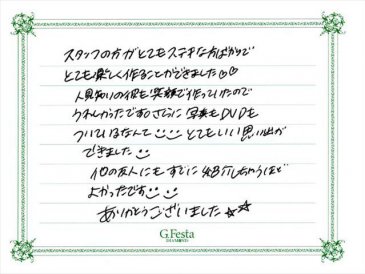 スタッフの方がとてもステキな方ばかりで
とても楽しく作ることができました♡♡
人見知りの彼も笑顔で作っていたので
うれしかったです。さらに写真もDVDも
ついているなんて とてもいい思い出が
できました
他の友人にもすぐに紹介しちゃうほど
よかったです
ありがとうございました☆☆
G.Festa
DIAMOND